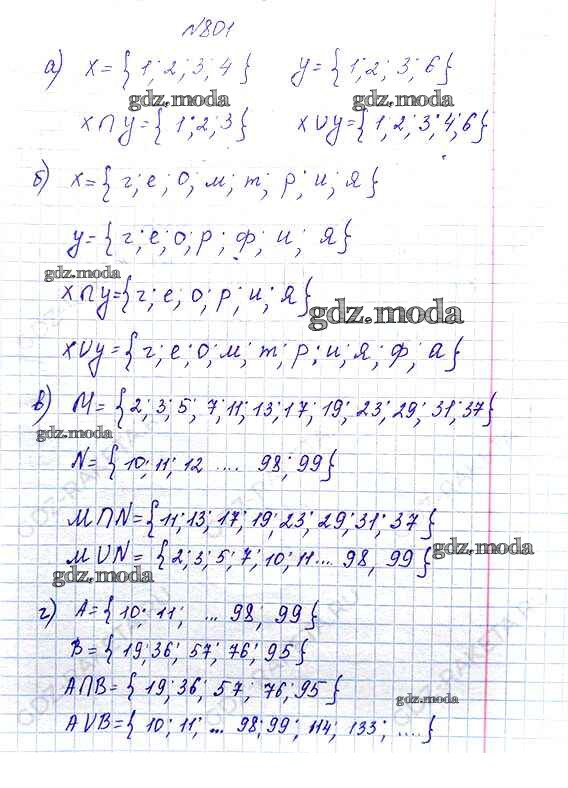 №801
а) x={1;2;3;4} y={1;2;3;6}
gdz.moda gdz.moda
x∩y={1;2;3} x∪y={1;2;3;4;6}
б) x={г;е;о;м;т;р;и;я}
y={г;е;о;р;ф;и;я}
gdz.moda
x∩y={г;е;о;р;и;я}
gdz.moda
x∪y={г;е;о;м;т;р;и;я;ф;а}
в) M={2;3;5;7;11;13;17;19;23;29;31;37}
gdz.moda
N={10;11;12 .... 98;99}
M∩N={11;13;17;19;23;29;31;37}
M∪N={2;3;5;7;10;11... 98,99}
gdz.moda
gdz.moda
г) A={10;11; ... 98;99}
B={19;36;57;76;95}
A∩B={19;36;57;76;95}
gdz.moda
A∪B={10;11;... 98;99;114;133;....}